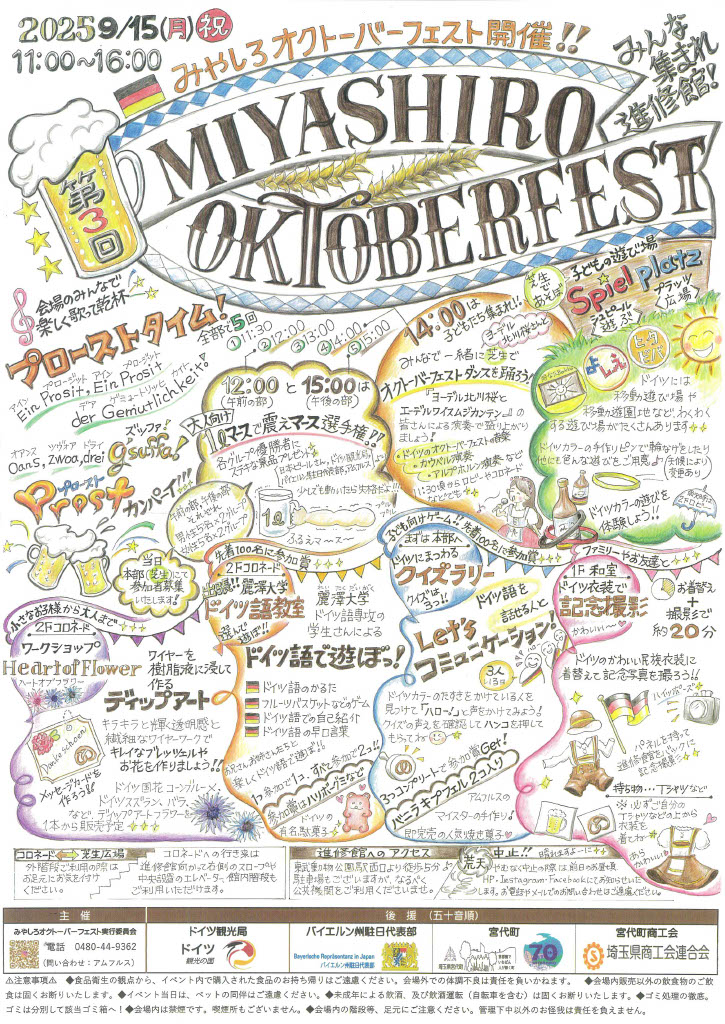 2025 9/15(月)祝
11:00~16:00
みやしろオクトーバーフェスト開催!!
みんな
集まれ
進修館!
第3回
MIYASHIRO
OKTOBERFEST
会場のみんなで
楽しく歌って乾杯
プローストタイム!
全部で5回
①11:30
②12:00
③13:00
④14:00
⑤15:00
アイン プロージット アイン プロージット
Ein Prosit, Ein Prosit
デア ゲミュートリッヒ カイト
der Gemütlichkeit.
オアンス ツヴォア ドライ
Oans, zwoa, drei
ズッファ!
g'suffa!
プロースト
Prost カンパーイ!!!
当日
本部(芝生)にて
参加者募集
いたします!
12:00と15:00は
(午前の部)
(午後の部)
大人向け
1ℓマースで震えマース選手権!!
各グループの優勝者に
ステキな景品プレゼント
日本ビールさん、ドイツ観光局より
バイエルン州駐日代表部、アムフルス
少しでも動いたら失格だよ!!
午前の部、午後の部
それぞれ
男性5名×2グループ
女性5名×2グループ
1ℓ
ふるえマース
14:00は
子どもたち集まれ!!
ヨーデル
北川桜さんと
みんなで一緒に芝生で
オクトーバーフェストダンスを踊ろう!
『ヨーデル北川桜と
エーデルワイスムジカンテン』の
皆さんによる演奏で盛り上がり
ましょう!
・ドイツのオクトーバーフェスト音楽
・カウベル演奏
・アルプホルン演奏など
11:30頃からロビーやコロネード
などでも
芝生で
あそぼ
子どもの遊び場
Spielplatz
シュピール
遊ぶ
プラッツ
広場
ドイツには
移動遊び場や
移動遊園地など、わくわく
する遊び場がたくさんあります
ドイツカラーの手作りピンで輪なげをしたり
他にも色んな遊びをご用意
天候により
変更あり
ドイツカラーの遊びを
体験しよう!!
小さなお子様から大人まで
2Fコロネード
ワークショップ
Heart of Flower
ハートオブフラワー
ワイヤーを
樹脂液に浸して
作る
ディップアート
キラキラと輝く透明感と
繊細なワイヤーワークで
キレイなプレッツェルや
お花を作りましょう!!
Danke schoen
メッセージカードを
作ろう!!
ドイツ国花コーンブルーメ、
ドイツスズラン、バラ、
など、ディップアートフラワーを
1本から販売予定
先着100名に参加賞
2Fコロネード
出張!!麗澤大学
ドイツ語教室
選んで遊ぼ!!
れいたくだいがく
麗澤大学
ドイツ語専攻の
学生さんによる
ドイツ語で遊ぼっ!
ドイツ語のかるた
フルーツバスケットなどのゲーム
ドイツ語での自己紹介
ドイツ語の早口言葉
お兄さんお姉さんたちと
楽しくドイツ語で遊ぼう!!
1つ参加で1コ、すべて参加で2コ!!
参加賞はハリボーグミなど
ドイツの
有名駄菓子
子ども向けゲーム!!先着100名に参加賞
まずは本部へ
ドイツにまつわる
クイズラリー
クイズは
3つ!!
ドイツ語を
話せる人と
Let's
コミュニケーション!
3人
いるよ
ドイツカラーのたすきをかけている人を
見つけて「ハロー!」と声をかけてみよう!
クイズの答えを確認してハンコを押して
もらってね
3つコンプリートで参加賞Get!
バニラキプフェル2コ入り
アムフルスの
マイスターの手作り!
即完売の人気焼き菓子
ファミリーやお友達と
1F 和室
ドイツ衣装で
記念撮影
かわいい~
お着替え
+
撮影で
約20分
ドイツのかわいい民族衣装に
着替えて記念写真を撮ろう!!
ハイッポーズ
パネルを持って
進修館をバックに
記念撮影
持ち物…Tシャツなど
※必ずご自分の
Tシャツなどの上から
衣装を
着てね
かわいい
コロネード
芝生広場
外階段ご利用の際は
お足元にお気を付け
ください。
コロネードへの行き来は
進修館向かって右側のスロープか
中央設置のエレベーター、館内階段も
ご利用いただけます。
進修館へのアクセス
東武動物公園駅西口より徒歩5分
駐車場もございますが、なるべく
公共機関をご利用くださいませ。
荒天中止!!
晴れますよーに
やむなく中止の際は前日のお昼頃
HP・Instagram・Facebookにてお知らせいた
します。お電話やメールでのお問い合わせはご遠慮ください。
主 催
後 援 (五十音順)
みやしろオクトーバーフェスト実行委員会
電話 0480-44-9362
(問い合わせ:アムフルス)
ドイツ観光局
ドイツ
観光の国
バイエルン州駐日代表部
Bayerische Repräsentanz in Japan
バイエルン州駐日代表部
宮代町
埼玉県宮代町
70
宮代町商工会
埼玉県商工会連合会
⚠注意事項⚠ ◆食品衛生の観点から、イベント内で購入された食品のお持ち帰りはご遠慮ください。会場外での体調不良は責任を負いかねます。 ◆会場内販売以外の飲食物のご飲
食は固くお断りいたします。◆イベント当日は、ペットの同伴はご遠慮ください。◆未成年による飲酒、及び飲酒運転(自転車を含む)は固くお断りいたします。◆ゴミ処理の徹底。
ゴミは分別して該当ゴミ箱へ!◆会場内は禁煙です。喫煙所もございません。◆会場内の階段等、足元にご注意ください。管理下中以外のお怪我は責任を負えません。